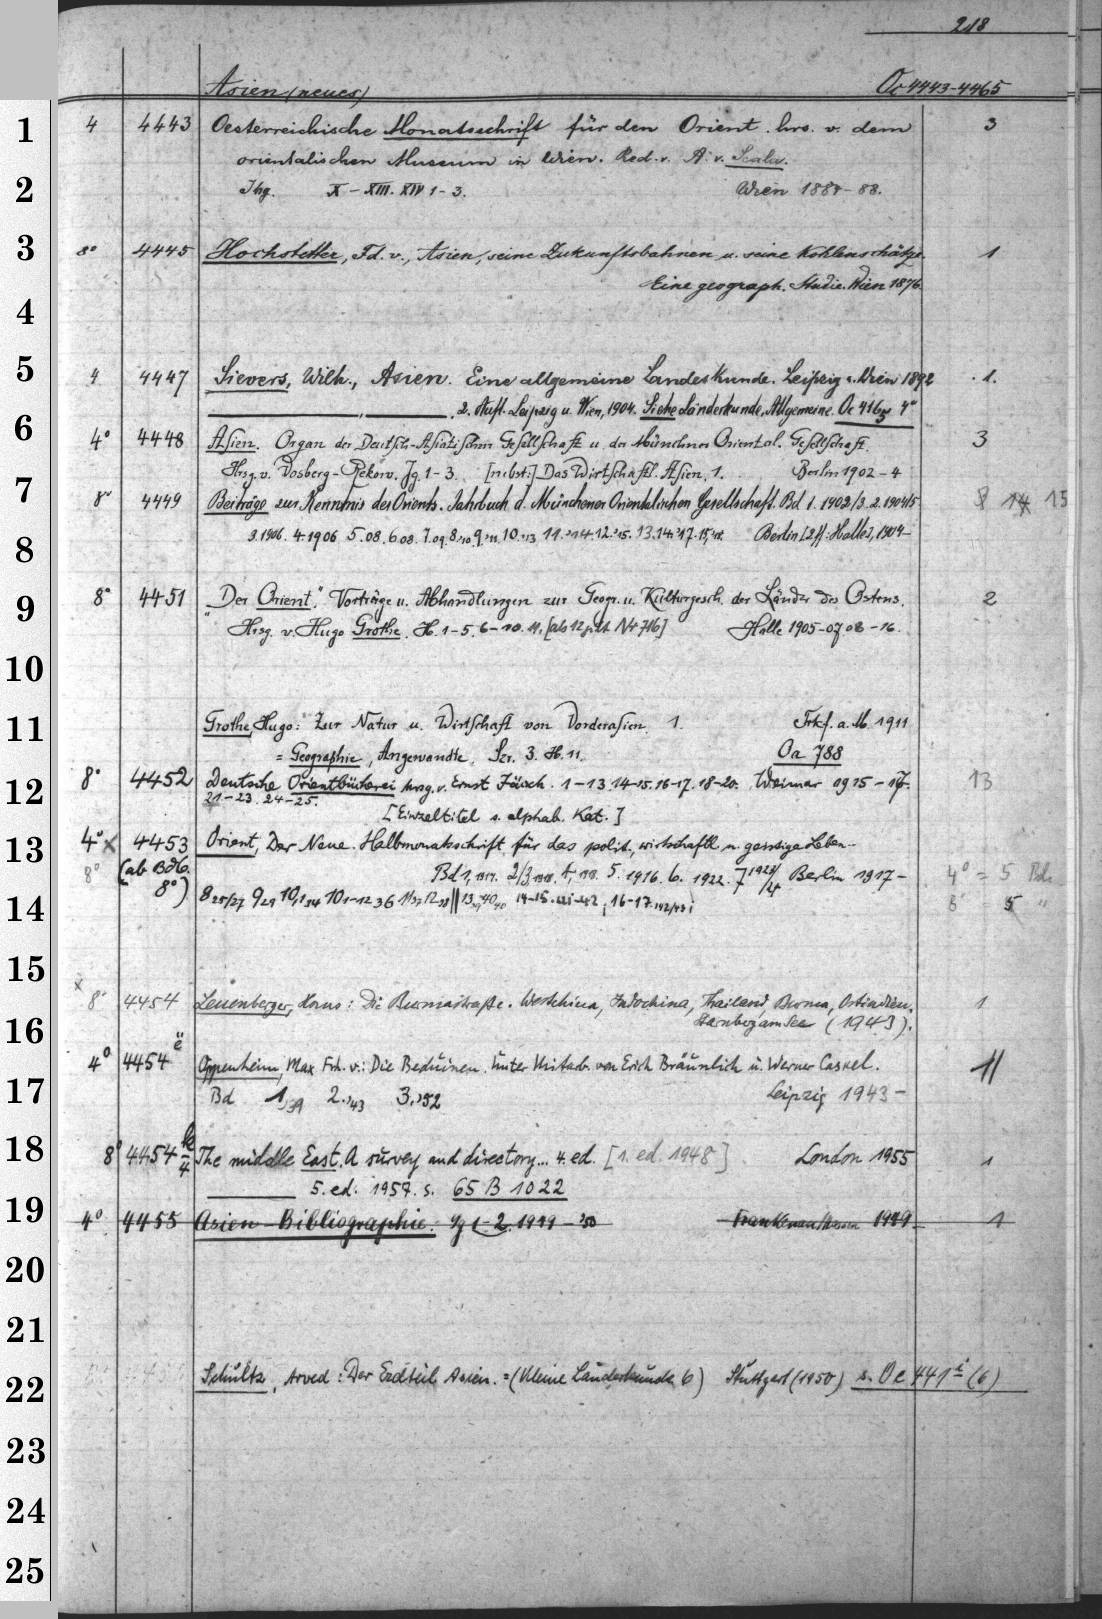 218
Asien (neues) Oc 4443-4465
1 4 4443 Oesterreichische Monatsschrift für den Orient. hrs. v. dem 3
orientalischen Museum in Wien. Red. v. A. v. Scala.
2 Jhg. X - XIII. XIV 1-3. Wien 1884-88.
3 8° 4445 Hochstetter, Fd. v., Asien, seine Zukunftsbahnen u. seine Kohlenschätze. 1
Eine geograph. Studie. Wien 1876.
4
5 4 4447 Sievers, Wilh., Asien. Eine allgemeine Landeskunde. Leipzig u. Wien 1892 1.
2. Aufl. Leipzig u. Wien, 1904. Siehe Länderkunde, Allgemeine. Oc 416 4°
6 4° 4448 Asien. Organ der Deutsch-Asiatischen Gesellschaft u. der Münchner Oriental. Gesellschaft. 3
Hrsg. v. Vosberg-Rekow. Jg. 1-3. [nebst:] Das Wirtschaftl. Asien. 1. Berlin 1902-4
7 8° 4449 Beiträge zur Kenntnis des Orients. Jahrbuch d. Münchener Orientalischen Gesellschaft. Bd 1. 1902/3. 2. 1904/5 8 14 15
8 3. 1906. 4. 1906 5. 08. 6. 08. 7. 09. 8. '10. 9. '11. 10. '13 11. '14. 12. '15. 13. 14. '17. 15, '18. Berlin [2ff: Halle], 1904-
9 8° 4451 "Der Orient." Vorträge u. Abhandlungen zur Geogr. u. Kulturgesch. der Länder des Ostens. 2
Hrsg. v. Hugo Grothe. H. 1-5. 6-10. 11. [als 12 gilt Nr 716] Halle 1905-07 08-16.
10
11 Grothe, Hugo: Zur Natur u. Wirtschaft von Vorderasien. 1. Frkf. a. M. 1911
= Geographie, Angewandte, Ser. 3. H. 11. Oa 788
12 8° 4452 Deutsche Orientbücherei hrsg. v. Ernst Jäckh. 1-13 14-15. 16-17. 18-20. Weimar 1915-17. 13
21-23. 24-25.
[Einzeltitel s. alphab. Kat.]
13 4° x 4453 Orient, Der Neue. Halbmonatsschrift für das polit., wirtschaftl. u. geistige Leben..
8° (ab Bd 6. 8°) Bd 1, 1917. 2/3, 1918. 4, 1918. 5. 1916. 6. 1922. 7 1923/24 Berlin 1917- 4° = 5 Bde
14 8 25/27 9 29 10, 1 34 10 1-12 36 11/37 12 38 || 13 39/40 14-15. 41-42, 16-17. 1942/43 8° 5 "
15
x 8° 4454 Leuenberger, Hans: Die Burmastraße. Westchina, Indochina, Thailand, Burma, Ostindien. 1
16 Starnberg am See (1943).
4° 4454 e Oppenheim, Max Frh. v.: Die Beduinen. Unter Mitarb. von Erich Bräunlich u. Werner Caskel.
17 Bd 1, 39 2. '43 3. '52 Leipzig 1943-
18 8° 4454 k/4 The middle East. A survey and directory... 4. ed. [1. ed. 1948] London 1955 1
5. ed. 1957. s. 65 B 1022
19 4° 4455 Asien-Bibliographie. Jg 1-2. 1949-'50 1949- 1
20
21
22 Schultz, Arved: Der Erdteil Asien. = (Kleine Länderkunde 6) Stuttgart (1950) s. Oc 441 i (6)
23
24
25